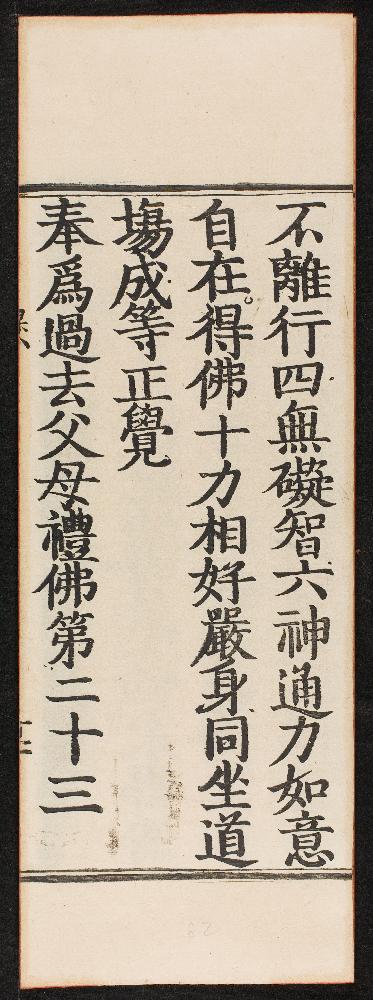 不離行四無礙智六神通力如意
自在。得佛十力相好嚴身同坐道
塲成等正覺
奉爲過去父母禮佛第二十三